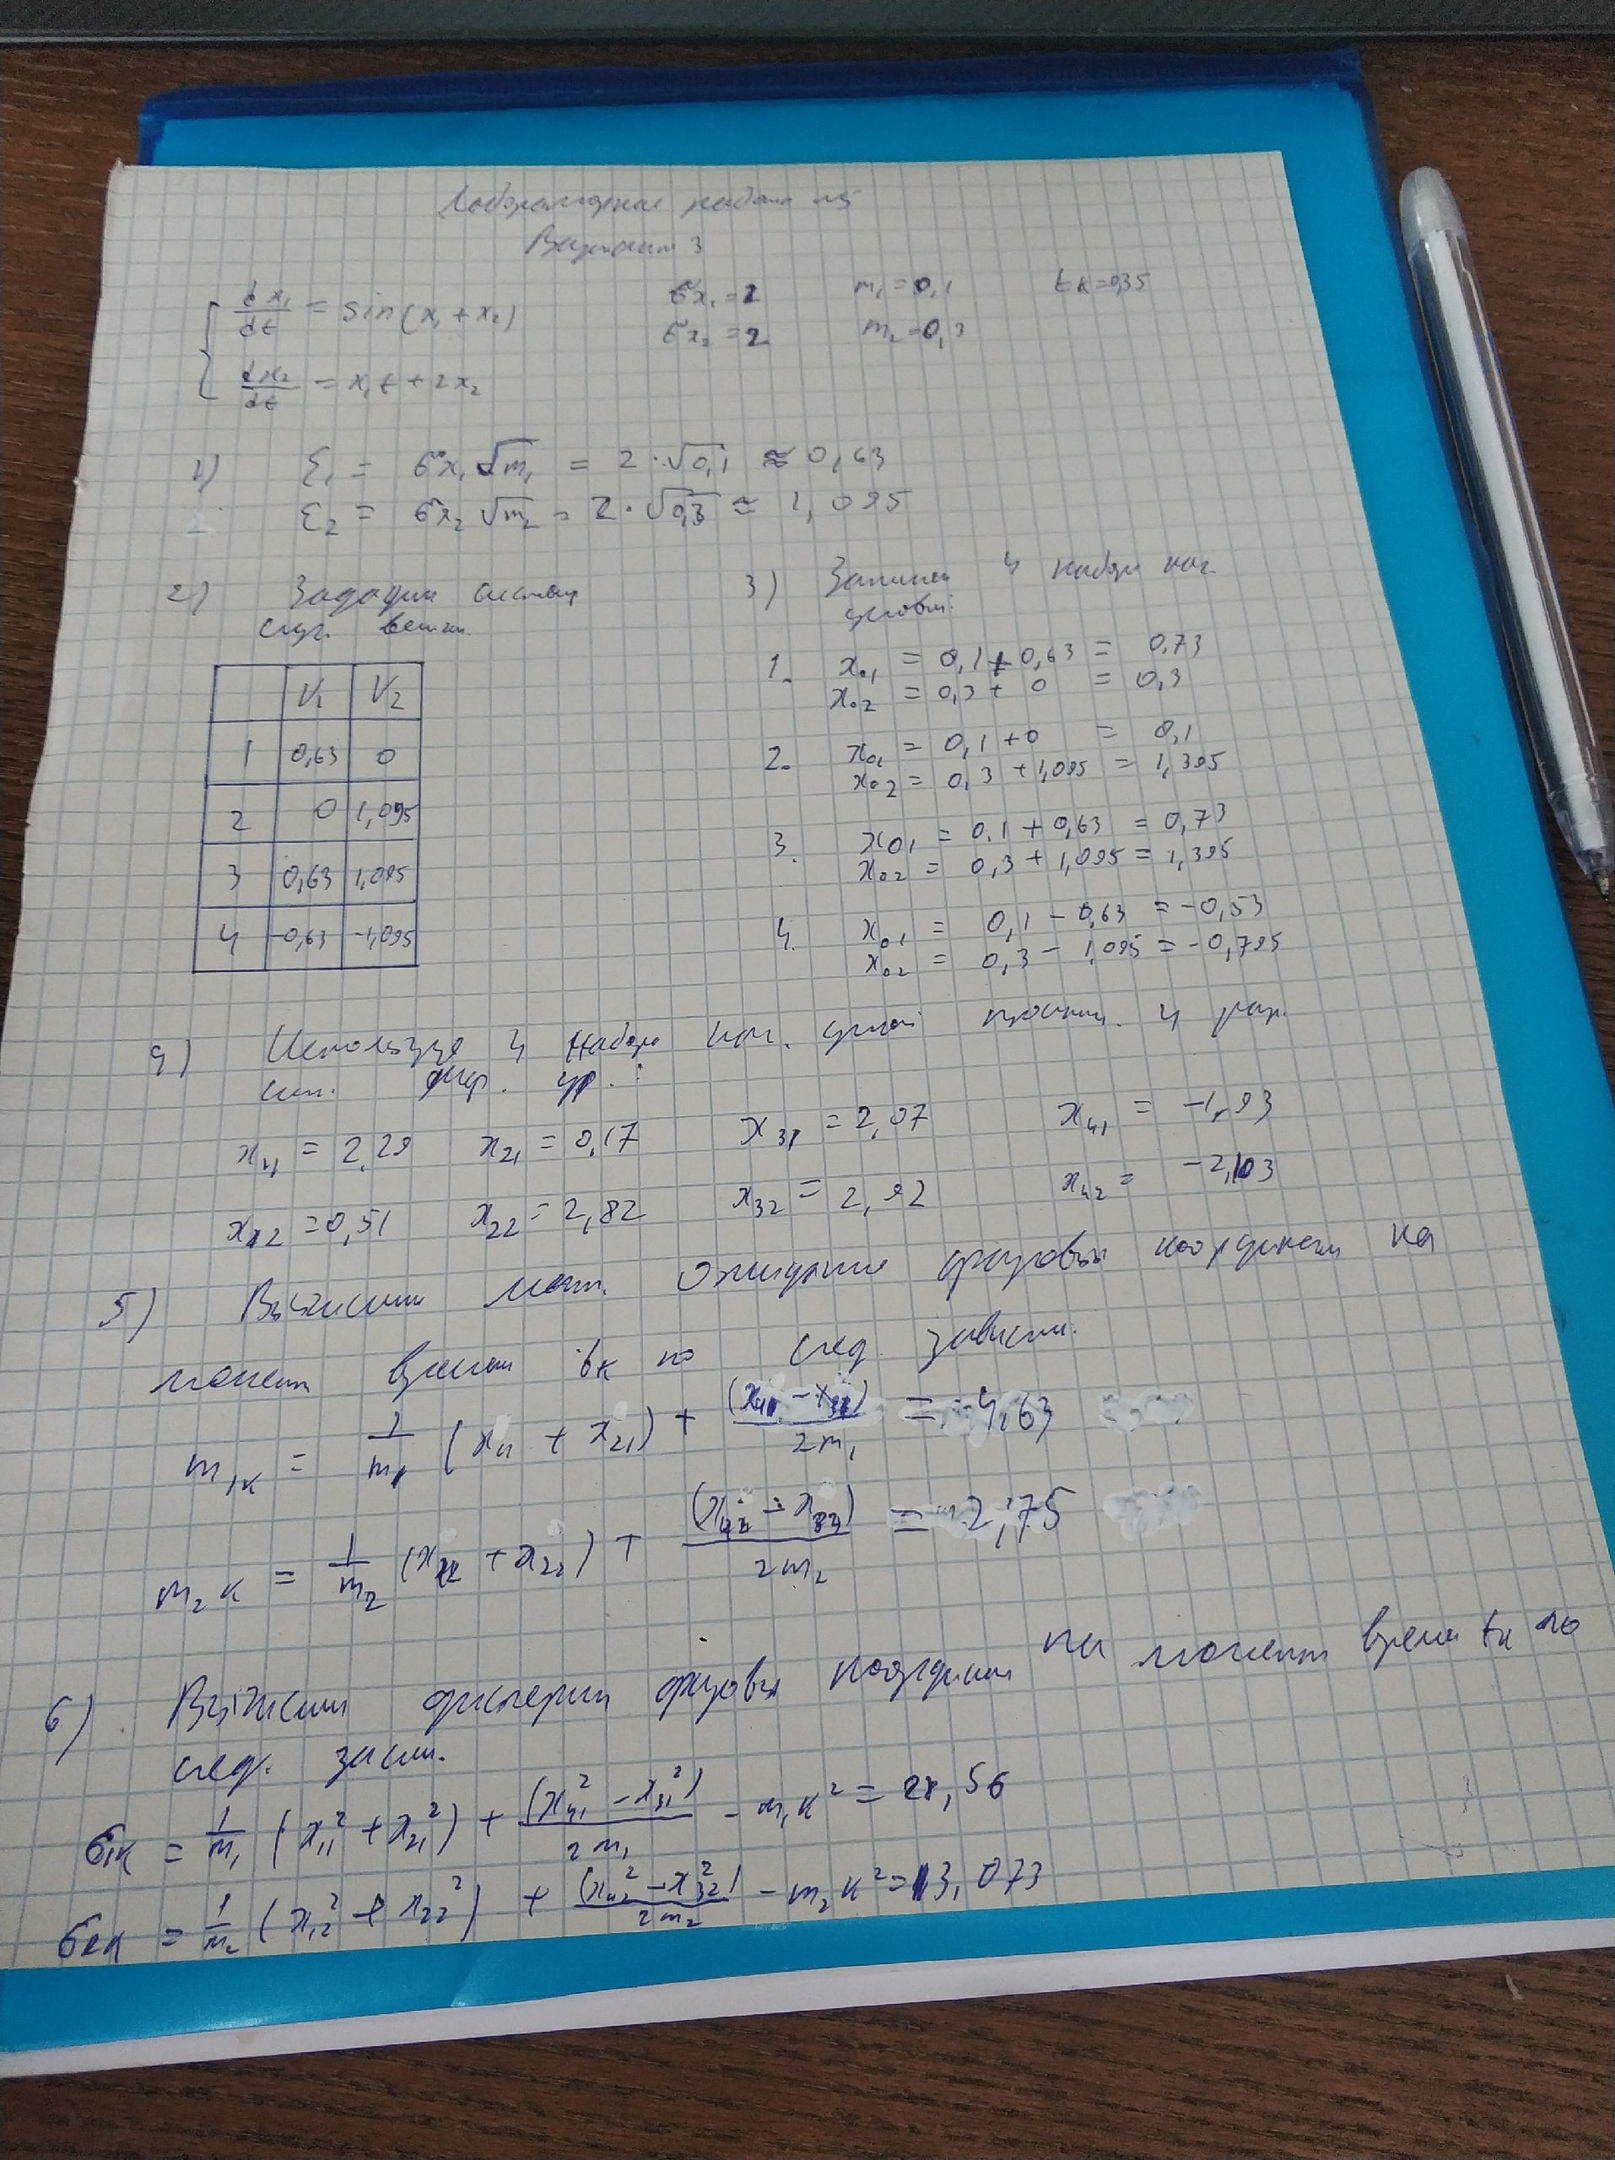 Лабораторная работа №5
Вариант 3
dx₁/dt = sin(x₁ + x₂)
σx₁ = 2 m₁ = 0,1 tк = 0,35
σx₂ = 2 m₂ = 0,3
dx₂/dt = x₁t + 2x₂
1) ξ₁ = σx₁ √m₁ = 2·√0,1 ≈ 0,63
ξ₂ = σx₂ √m₂ = 2·√0,3 ≈ 1,095
2) Зададим систему
случ. величин.
V₁ V₂
1 0,63 0
2 0 1,095
3 0,63 1,095
4 -0,63 -1,095
3) Запишем 4 набора нач.
условий:
1. x₀₁ = 0,1 + 0,63 = 0,73
x₀₂ = 0,3 + 0 = 0,3
2. x₀₁ = 0,1 + 0 = 0,1
x₀₂ = 0,3 + 1,095 = 1,395
3. x₀₁ = 0,1 + 0,63 = 0,73
x₀₂ = 0,3 + 1,095 = 1,395
4. x₀₁ = 0,1 - 0,63 = -0,53
x₀₂ = 0,3 - 1,095 = -0,795
4) Используя 4 набора нач. условий 4
сис. диф. ур.:
x₁₁ = 2,29 x₂₁ = 0,17 x₃₁ = 2,07 x₄₁ = -1,93
x₁₂ = 0,51 x₂₂ = 2,82 x₃₂ = 2,92 x₄₂ = -2,103
5) Вычислим мат. ожидание фазовых координат на
момент времени tк по след. зависим.
m₁к = 1/m₁ (x₁₁ + x₂₁) + (x₄₁ - x₃₁)/2m₁ = 4,63
m₂к = 1/m₂ (x₁₂ + x₂₂) + (x₄₂ - x₃₂)/2m₂ = 2,75
6) Вычислим дисперсии фазовых координат на момент времени tк по
след. завис.
σ₁к = 1/m₁ (x₁₁² + x₂₁²) + (x₄₁² - x₃₁²)/2m₁ - m₁к² = 28,56
σ₂к = 1/m₂ (x₁₂² + x₂₂²) + (x₄₂² - x₃₂²)/2m₂ - m₂к² = 13,073